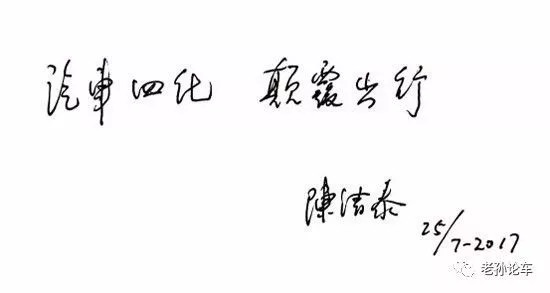 汽車四化 顛覆出行
陳清泰
25/7-2017
老孙论车